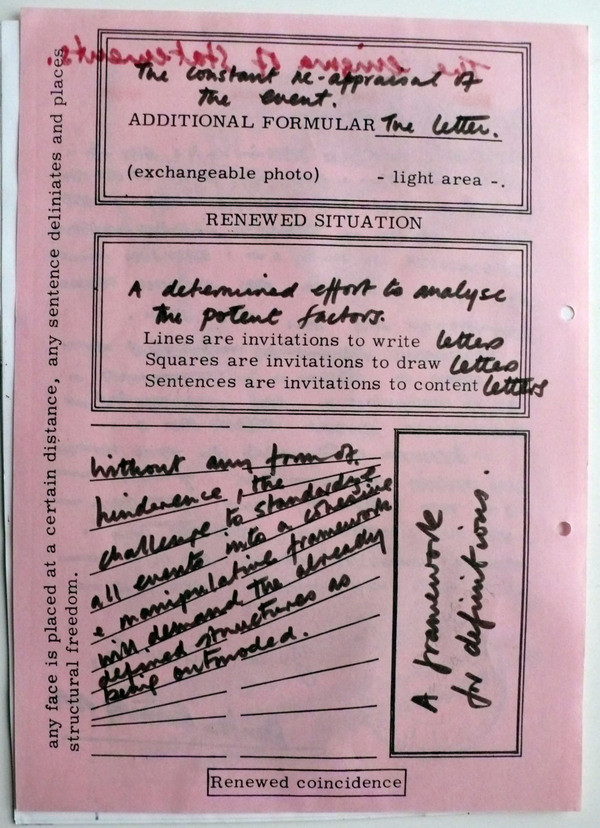 The enigma of statements.
The constant re-appraisal of
the event.
ADDITIONAL FORMULAR The letter.
(exchangeable photo) - light area -.
RENEWED SITUATION
A determined effort to analyse
the potent factors.
Lines are invitations to write letters
Squares are invitations to draw letters
Sentences are invitations to content letters
without any form of
hinderence, the
challenge to standardize
all events into a cohesive
e manipulative framework
will demand the already
defined structures as
being outmoded.
A framework
for definitions.
Renewed coincidence
any face is placed at a certain distance, any sentence deliniates and places
structural freedom.